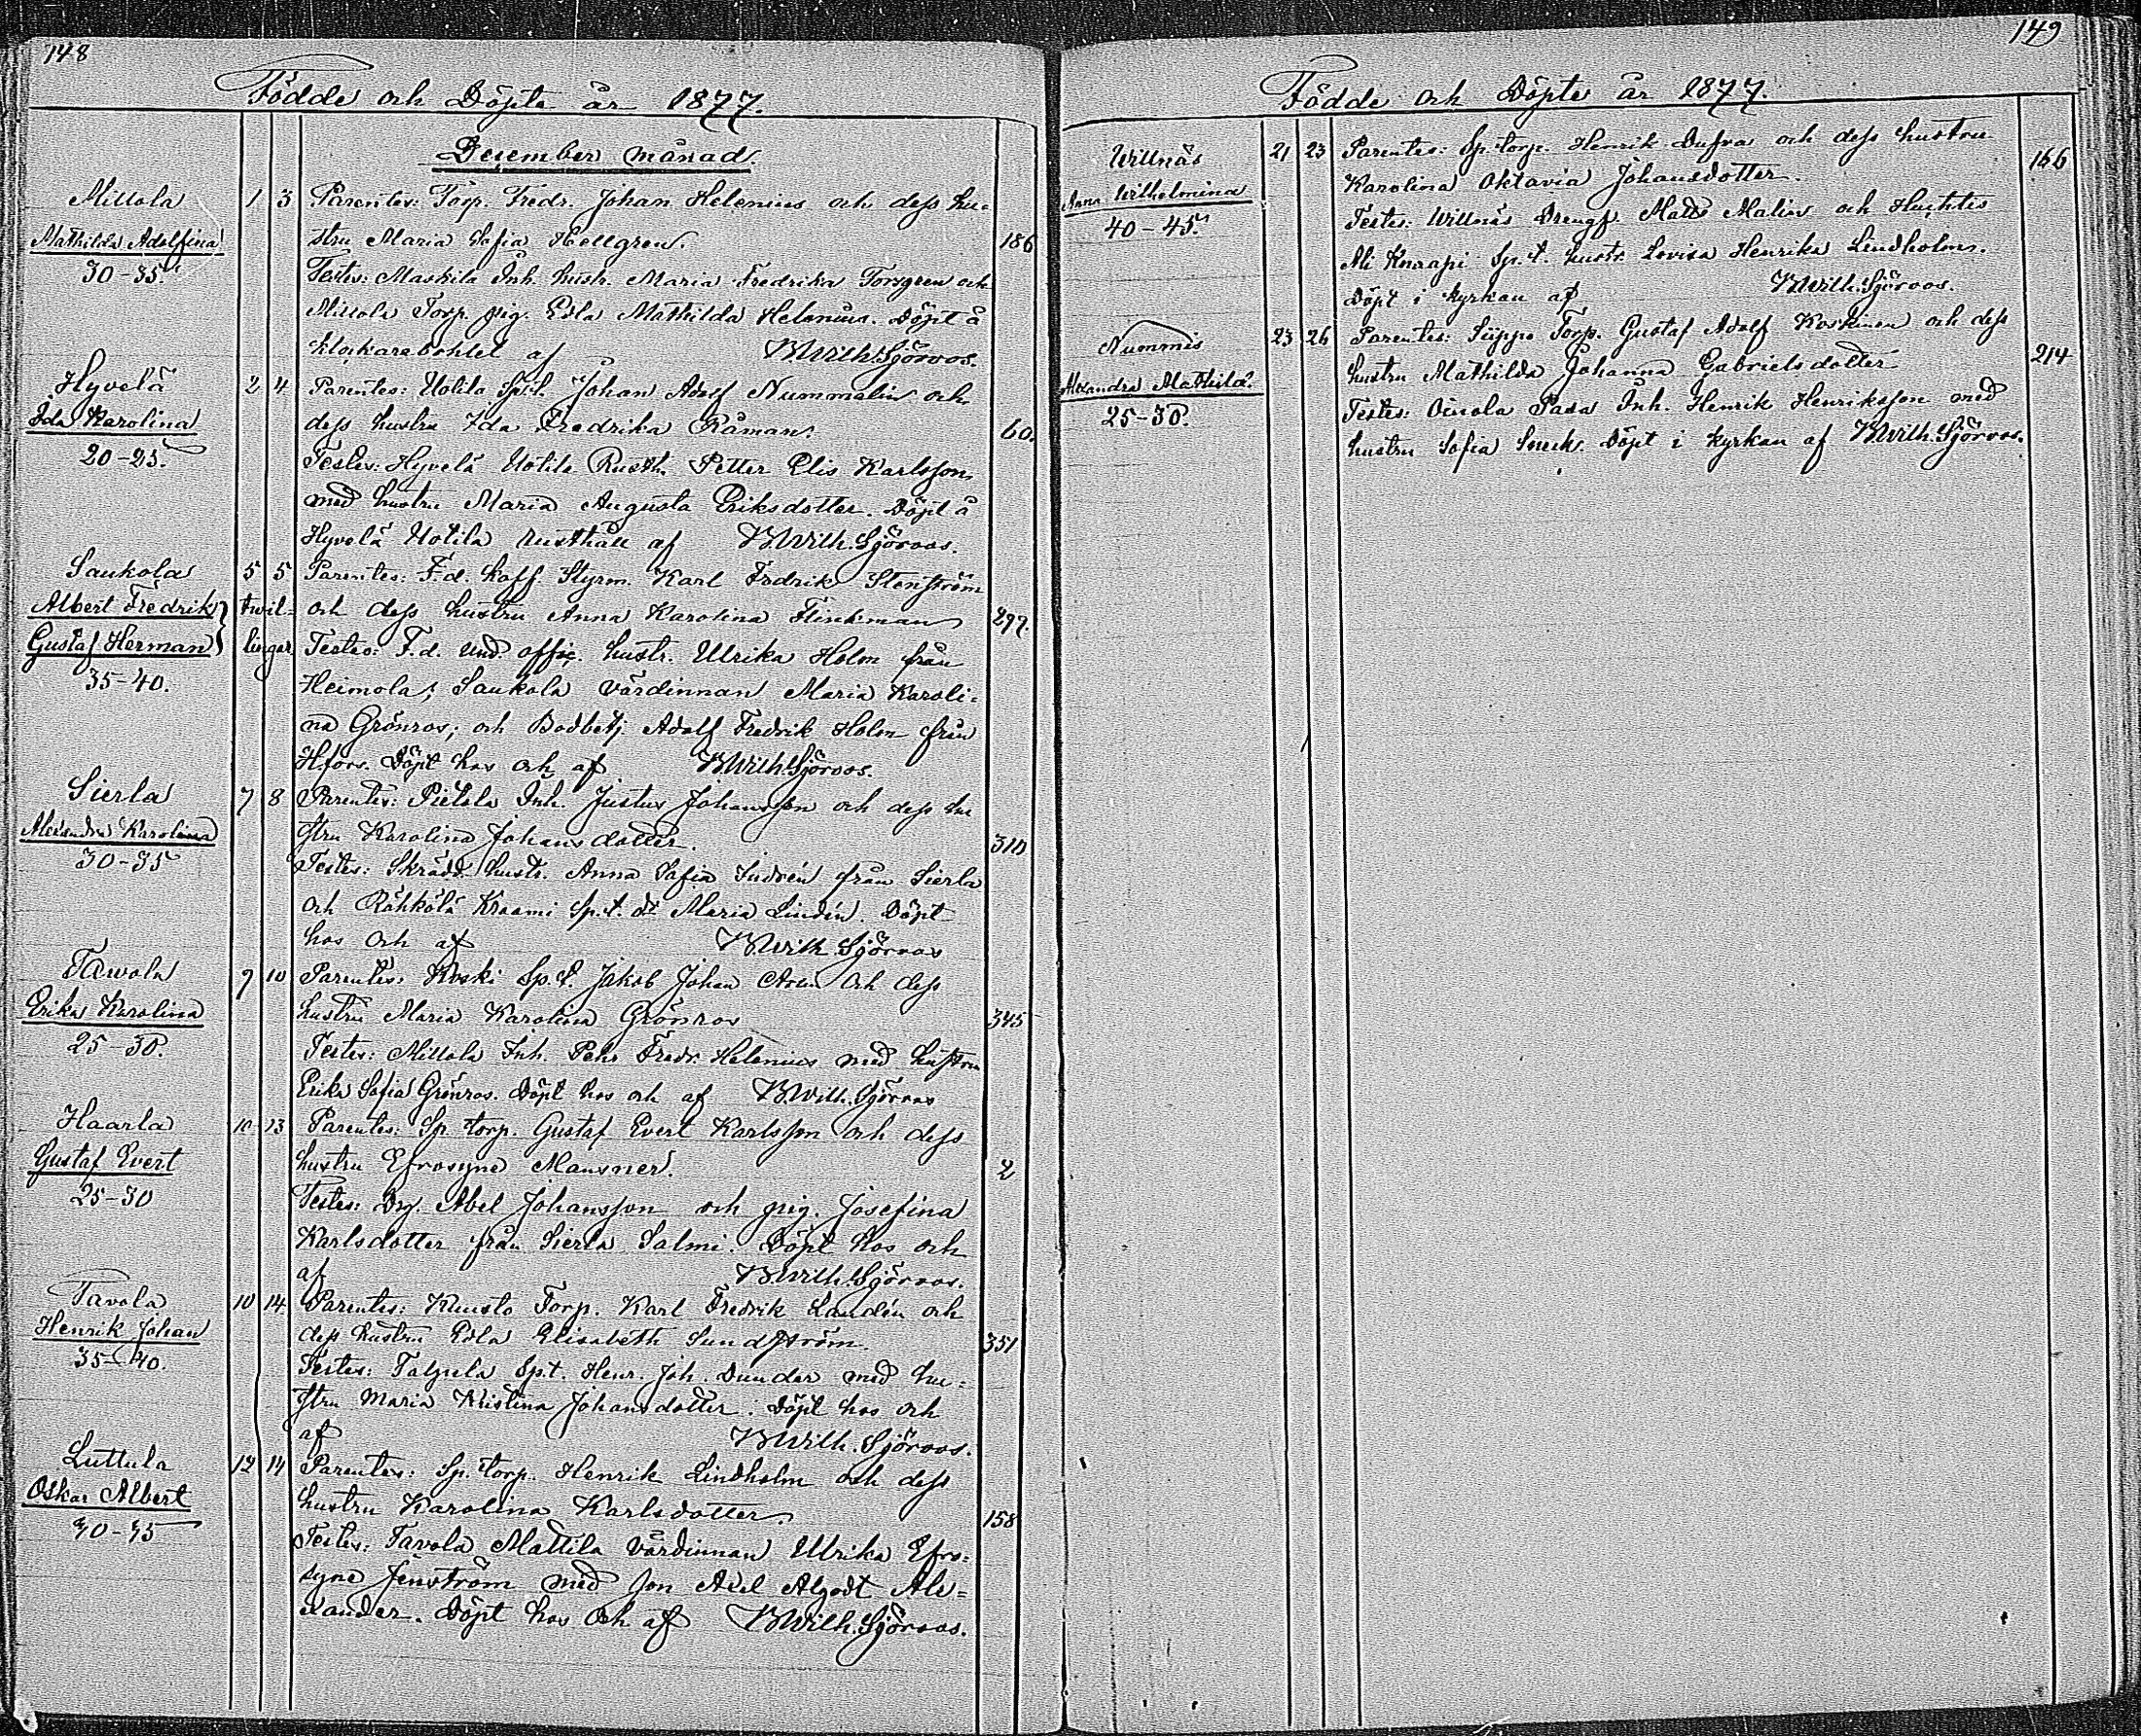 148
Födde och Döpte år 1877.
December månad.
Mittola 1 3 Parentes: Torp. Fredr. Johan Helenius och dess hu-
Mathilda Adolfina stru Maria Sofia Hellgren. 186
30-35. Testes: Maskila Inh. hustr. Maria Fredrika Torsgren och
Mittola Torp. pig. Edla Mathilda Helenius. Döpt å
klockarebohlet af B Wilh. Sjöroos.
Hyvelä 2 4 Parentes: Uotila Sp.t. Johan Adolf Nummelin och
Ida Karolina dess hustru Ida Fredrika Råman. 60.
20-25. Testes: Hyvelä Uotila Rusth. Petter Elis Karlsson
med hustru Maria Augusta Eriksdotter. Döpt å
Hyvelä Uotila rusthåll af B Wilh. Sjöroos.
Saukola 5 5 Parentes: F.d. Koff. Styrm. Karl Fredrik Stenström
Albert Fredrik twil- och dess hustru Anna Karolina Flinkman 297.
Gustaf Herman lingar Testes: F.d. und. offic. hustr. Ulrika Holm från
35-40. Heimola; Saukola värdinnan Maria Karoli-
na Grönroos; och Bodbetj. Adolf Fredrik Holm från
Hfors. Döpt hos och af B Wilh. Sjöroos.
Sierla 7 8 Parentes: Pietola Inh. Justus Johansson och dess hu
Alexandra Karolina stru Karolina Johansdotter. 310
30-35 Testes: Skrädd. hustr. Anna Sofia Indrén från Sierla
och Röhkölä Kraami Sp.t. dr Maria Lindén. Döpt
hos och af B Wilh. Sjöroos
Tawola 9 10 Parentes: Koski Sp.t. Jakob Johan och dess
Erika Karolina hustru Maria Karolina Grönroos 345
25-30. Testes: Mittola Inh. Pehr Fredr. Helenius med hustru
Erika Sofia Grönros. Döpt hos och af B Wilh. Sjöroos
Haarla 10 13 Parentes: Sp. torp. Gustaf Evert Karlsson och dess
Gustaf Evert hustru Efrosyne Mansner. 2
25-30 Testes: Drg. Abel Johansson och pig. Josefina
Karlsdotter från Sierla Salmi. Döpt hos och
af B Wilh. Sjöroos.
Tavola 10 14 Parentes: Knuuto Torp. Karl Fredrik Landén och
Henrik Johan dess hustru Edla Elisabeth Sundström. 351
35-40. Testes: Talpula Sp.t. Henr. Joh. Dunder med hu-
stru Maria Kristina Johansdotter. Döpt hos och
af B Wilh. Sjöroos.
Luttula 12 14 Parentes: Sp. torp. Henrik Lindholm och dess
Oskar Albert hustru Karolina Karlsdotter. 158
30-35 Testes: Tavola Mattila värdinnan Ulrika Efro-
syne Jenström med son Axel Algodt Ale-
xander. Döpt hos och af B Wilh. Sjöroos.
149
Födde och Döpte år 1877.
Willnäs 21 23 Parentes: Sp. torp. Henrik Dufva och dess hustru 166
Anna Wilhelmina Karolina Oktavia Johansdotter.
40-45. Testes: Willnäs Drengf. Matts Malin och Huhtis
Ali Knaapi Sp.t. hustr. Lovisa Henrika Lindholm.
Döpt i kyrkan af B Wilh. Sjöroos.
Nummis 23 26 Parentes: Seippo Torp. Gustaf Adolf Koskinen och dess 214
Alexandra Mathilda. hustru Mathilda Johanna Gabrielsdotter
25-30. Testes: Oinola Pasa Inh. Henrik Henriksson med
hustru Sofia Döpt i kyrkan af B Wilh. Sjöroos.